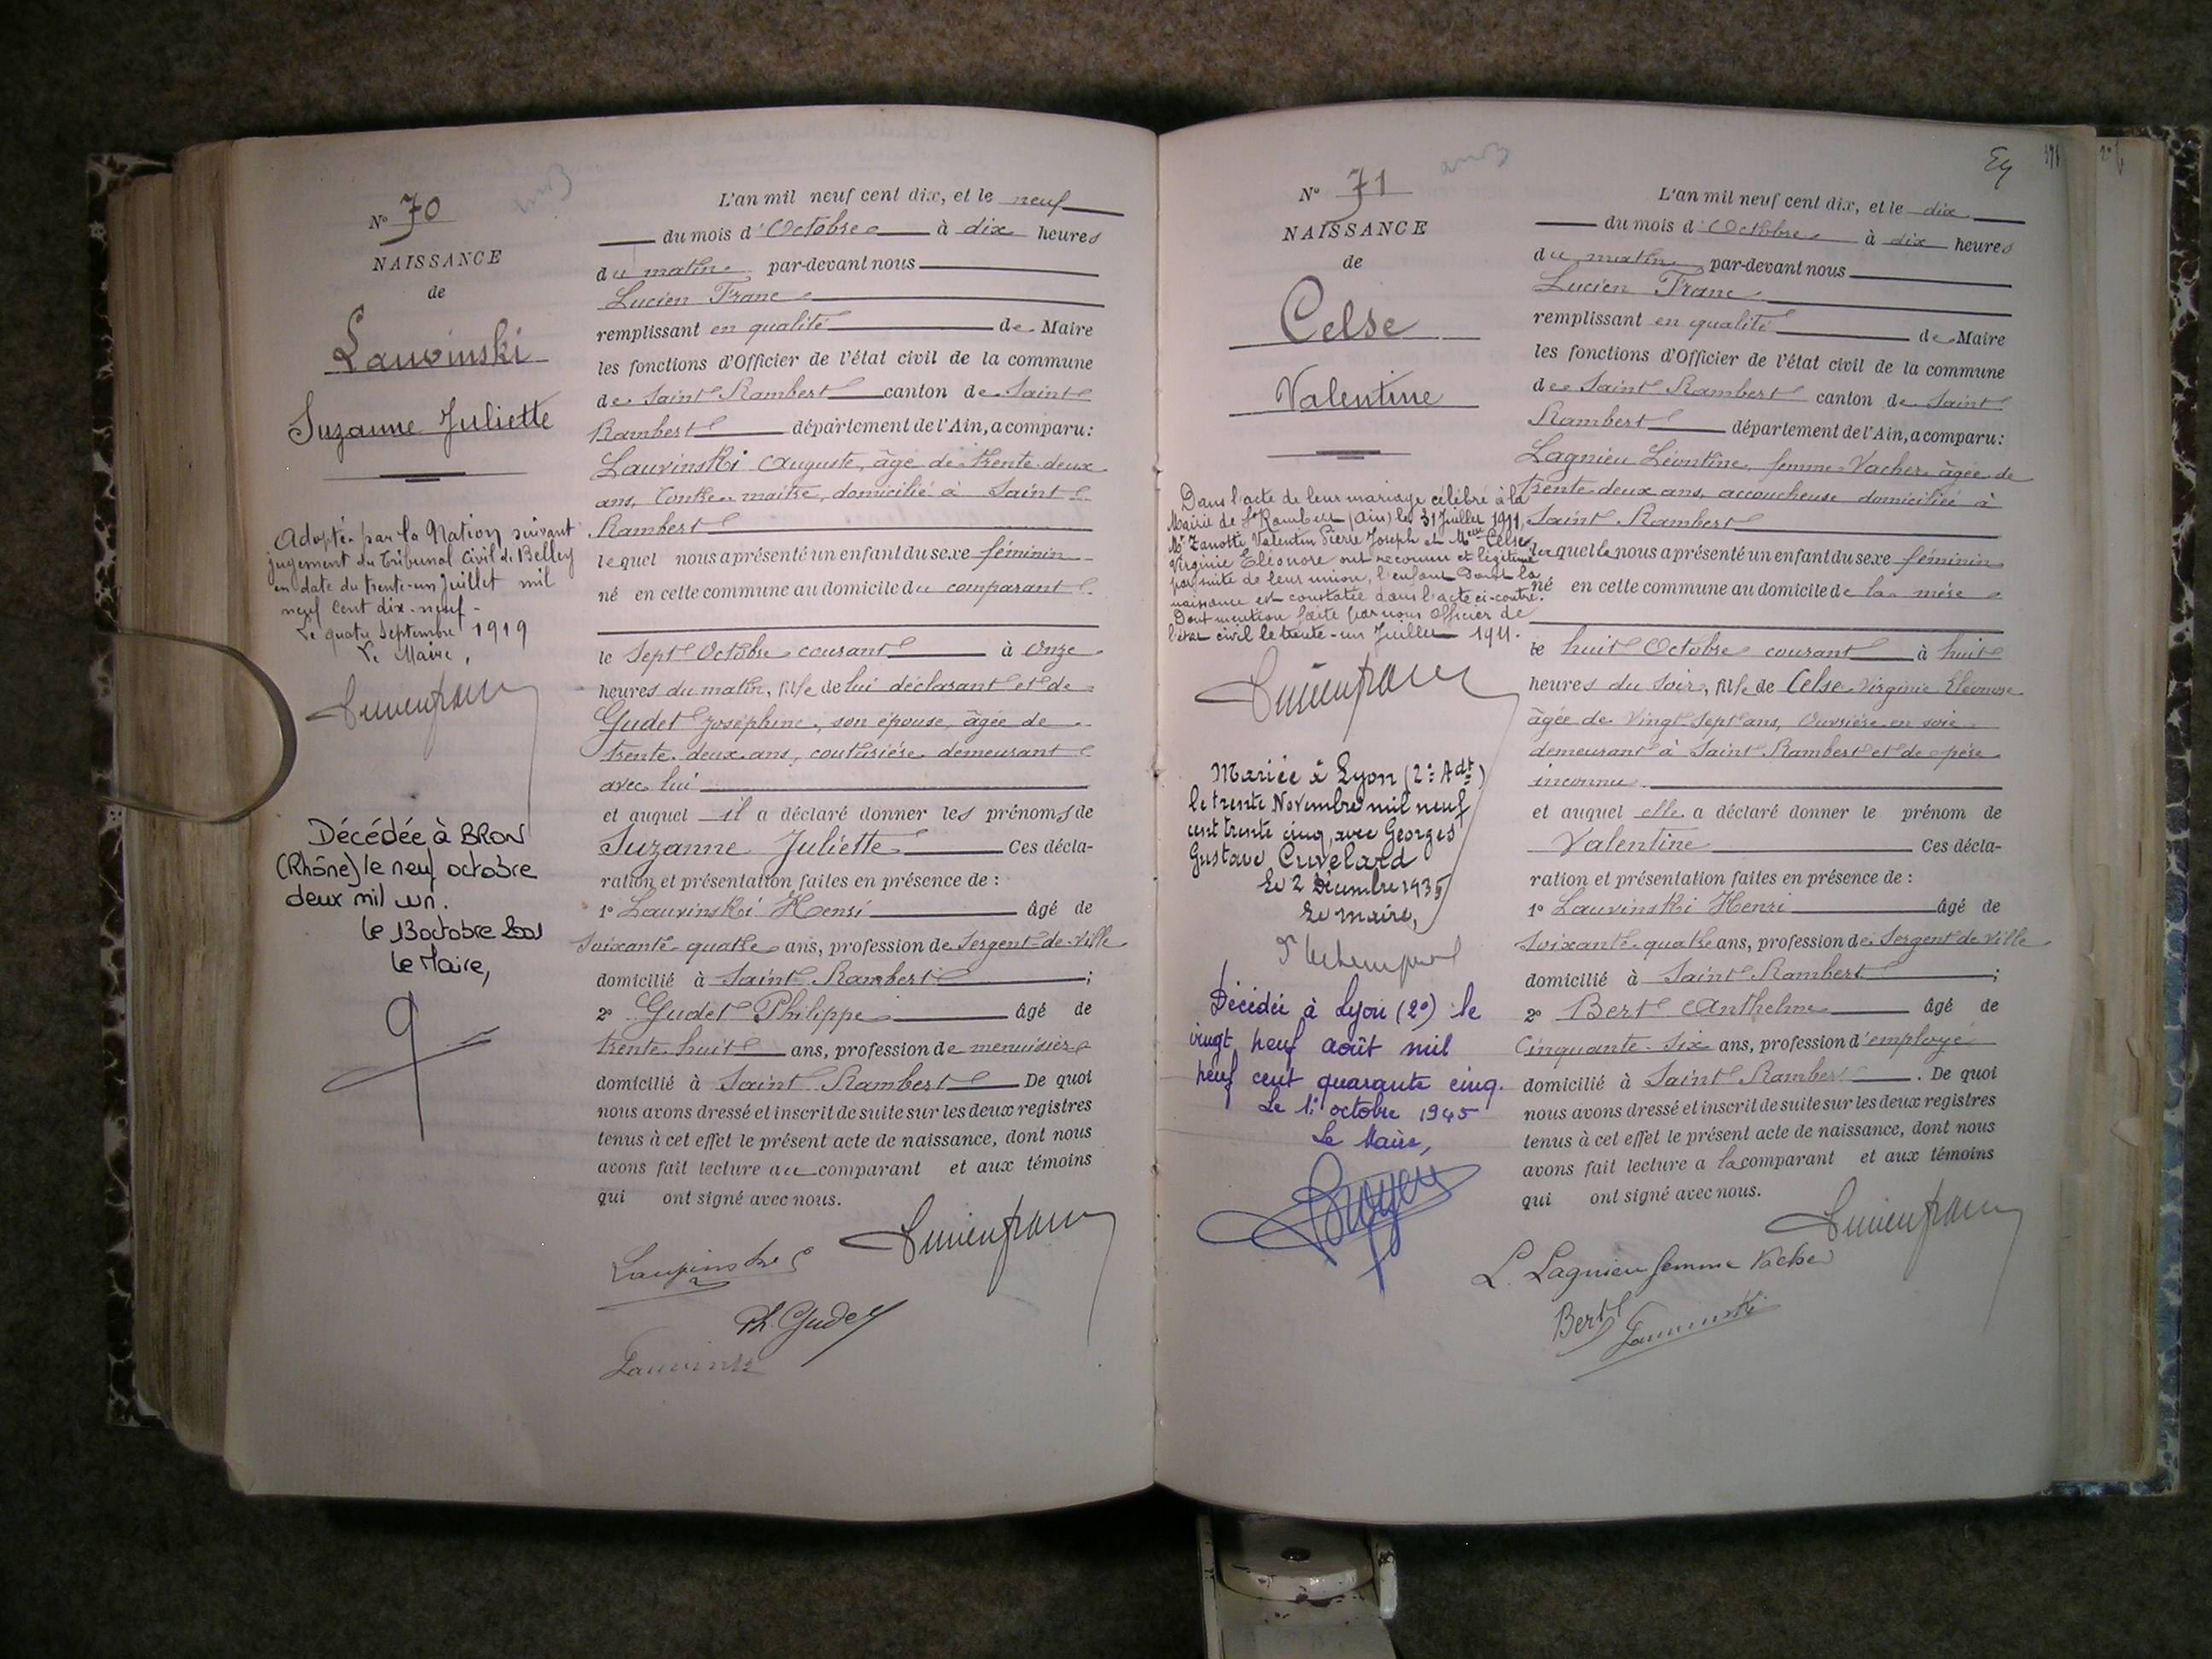 N° 70
NAISSANCE
de
Lauvinski
Suzanne Juliette
Adoptée par la Nation suivant
jugement du Tribunal Civil de Belley
en date du trente-un Juillet mil
neuf cent dix-neuf -
Le quatre Septembre 1919
Le Maire,
Lucien franc
Décédée à BRON
(Rhône) le neuf octobre
deux mil un.
le 13 octobre 2001
le Maire,
L'an mil neuf cent dix, et le neuf
du mois d'Octobre à dix heures
du matin par-devant nous
Lucien Franc
remplissant en qualité de Maire
les fonctions d'Officier de l'état civil de la commune
de Saint Rambert canton de Saint
Rambert département de l'Ain, a comparu:
Lauvinski Auguste, âgé de trente-deux
ans, Contre-maître, domicilié à Saint
Rambert
lequel nous a présenté un enfant du sexe féminin
né en cette commune au domicile du comparant
le Sept Octobre courant à onze
heures du matin, fille de lui déclarant et de
Gudet Joséphine, son épouse, âgée de
trente-deux ans, couturière demeurant
avec lui
et auquel il a déclaré donner les prénoms de
Suzanne Juliette Ces décla-
ration et présentation faites en présence de :
1° Lauvinski Henri âgé de
Soixante-quatre ans, profession de Sergent-de-Ville
domicilié à Saint Rambert ;
2° Gudet Philippe âgé de
trente-huit ans, profession de menuisier
domicilié à Saint Rambert De quoi
nous avons dressé et inscrit de suite sur les deux registres
tenus à cet effet le présent acte de naissance, dont nous
avons fait lecture au comparant et aux témoins
qui ont signé avec nous.
Lucien franc
Lauvinski
Ph. Gudet
Lauvinski
N° 71
NAISSANCE
de
Celse
Valentine
Dans l'acte de leur mariage célébré à la
Mairie de St Rambert (Ain) le 31 Juillet 1911,
Mr Zanotti Valentin Pierre Joseph et Melle Celse
Virginie Eléonore ont reconnu et légitimé
par suite de leur union, l'enfant dont la
naissance est constatée dans l'acte ci-contre.
Dont mention faite par nous Officier de
l'état civil le trente-un Juillet 1911.
Lucien franc
Mariée à Lyon (2e Adt)
le trente Novembre mil neuf
cent trente cinq, avec Georges
Gustave Cuvelard
Le 2 Décembre 1935
Le maire,
Décédée à Lyon (2e) le
vingt neuf août mil
neuf cent quarante cinq.
Le 1er octobre 1945
Le Maire,
L'an mil neuf cent dix, et le dix
du mois d'Octobre à dix heures
du matin par-devant nous
Lucien Franc
remplissant en qualité de Maire
les fonctions d'Officier de l'état civil de la commune
de Saint Rambert canton de Saint
Rambert département de l'Ain, a comparu:
Lagnieu Léontine, femme Vacher âgée de
trente-deux ans, accoucheuse domiciliée à
Saint Rambert
laquelle nous a présenté un enfant du sexe féminin
né en cette commune au domicile de la mère
le huit Octobre courant à huit
heures du Soir, fille de Celse Virginie Eléonore
âgée de Vingt-Sept ans, Ouvrière en soie
demeurant à Saint Rambert et de père
inconnu
et auquel elle a déclaré donner le prénom de
Valentine Ces décla-
ration et présentation faites en présence de :
1° Lauvinski Henri âgé de
Soixante-quatre ans, profession de Sergent de Ville
domicilié à Saint Rambert ;
2° Bert Anthelme âgé de
Cinquante-Six ans, profession d'employé
domicilié à Saint Rambert . De quoi
nous avons dressé et inscrit de suite sur les deux registres
tenus à cet effet le présent acte de naissance, dont nous
avons fait lecture a la comparant et aux témoins
qui ont signé avec nous.
Lucien franc
L. Lagnieu femme Vacher
Bert
Lauvinski